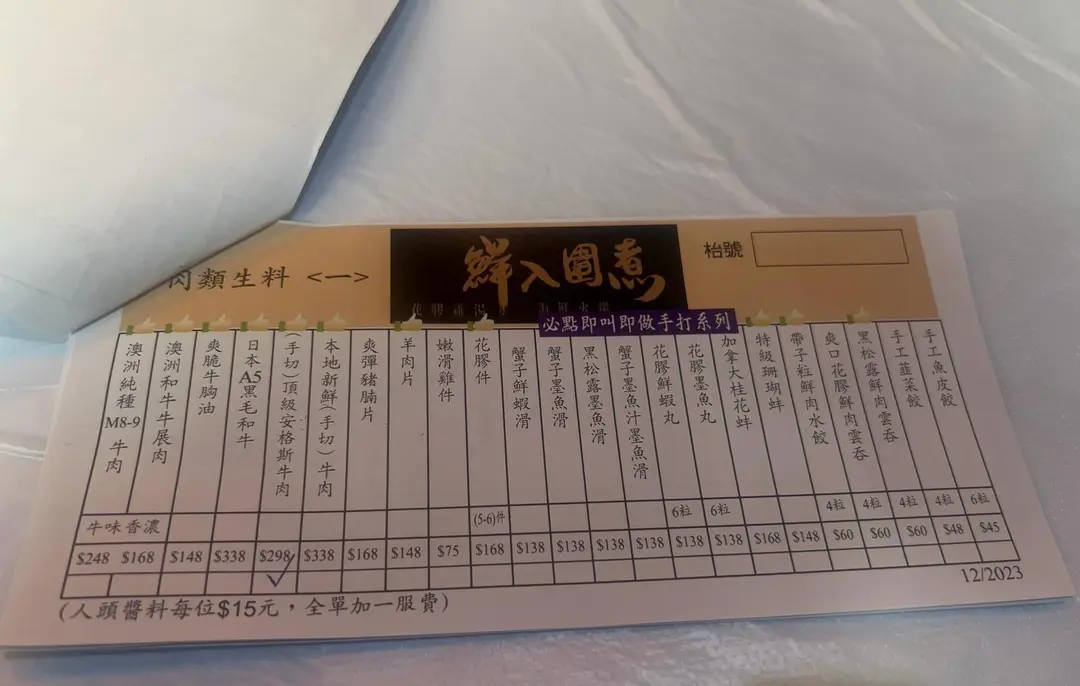 肉類生料 <一>
鮮入圍煮
枱號
必點即叫即做手打系列
澳洲純種M8-9牛肉
澳洲和牛牛展肉
爽脆牛胸油
日本A5黑毛和牛
(手切)頂級安格斯牛肉
本地新鮮(手切)牛肉
爽彈豬腩片
羊肉片
嫩滑雞件
花膠件
蟹子鮮蝦滑
蟹子墨魚滑
黑松露墨魚滑
蟹子墨魚汁墨魚滑
花膠鮮蝦丸
花膠墨魚丸
加拿大桂花蚌
特級珊瑚蚌
帶子粒鮮肉水餃
爽口花膠鮮肉雲吞
黑松露鮮肉雲吞
手工韮菜餃
手工魚皮餃
牛味香濃 (5-6)件 6粒 6粒 4粒 4粒 4粒 4粒 6粒
$248 $168 $148 $338 $298 $338 $168 $148 $75 $168 $138 $138 $138 $138 $138 $138 $168 $148 $60 $60 $60 $48 $45
(人頭醬料每位$15元，全單加一服費)
12/2023